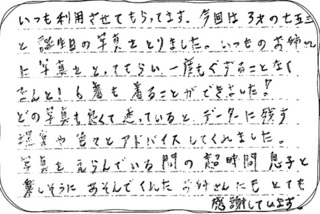 いつも利用させてもらってます。今回は3才の七五三
と誕生日の写真をとりました。いつものお姉さん
に写真をとってもらい、一度もぐずることなく
なんと！6着も着ることができました！
どの写真も良くて迷っていると、データーに残す
提案や色々とアドバイスしてくれました。
写真をえらんでいる間の長時間息子と
楽しそうにあそんでくれたお姉さんにもとても
感謝しています。